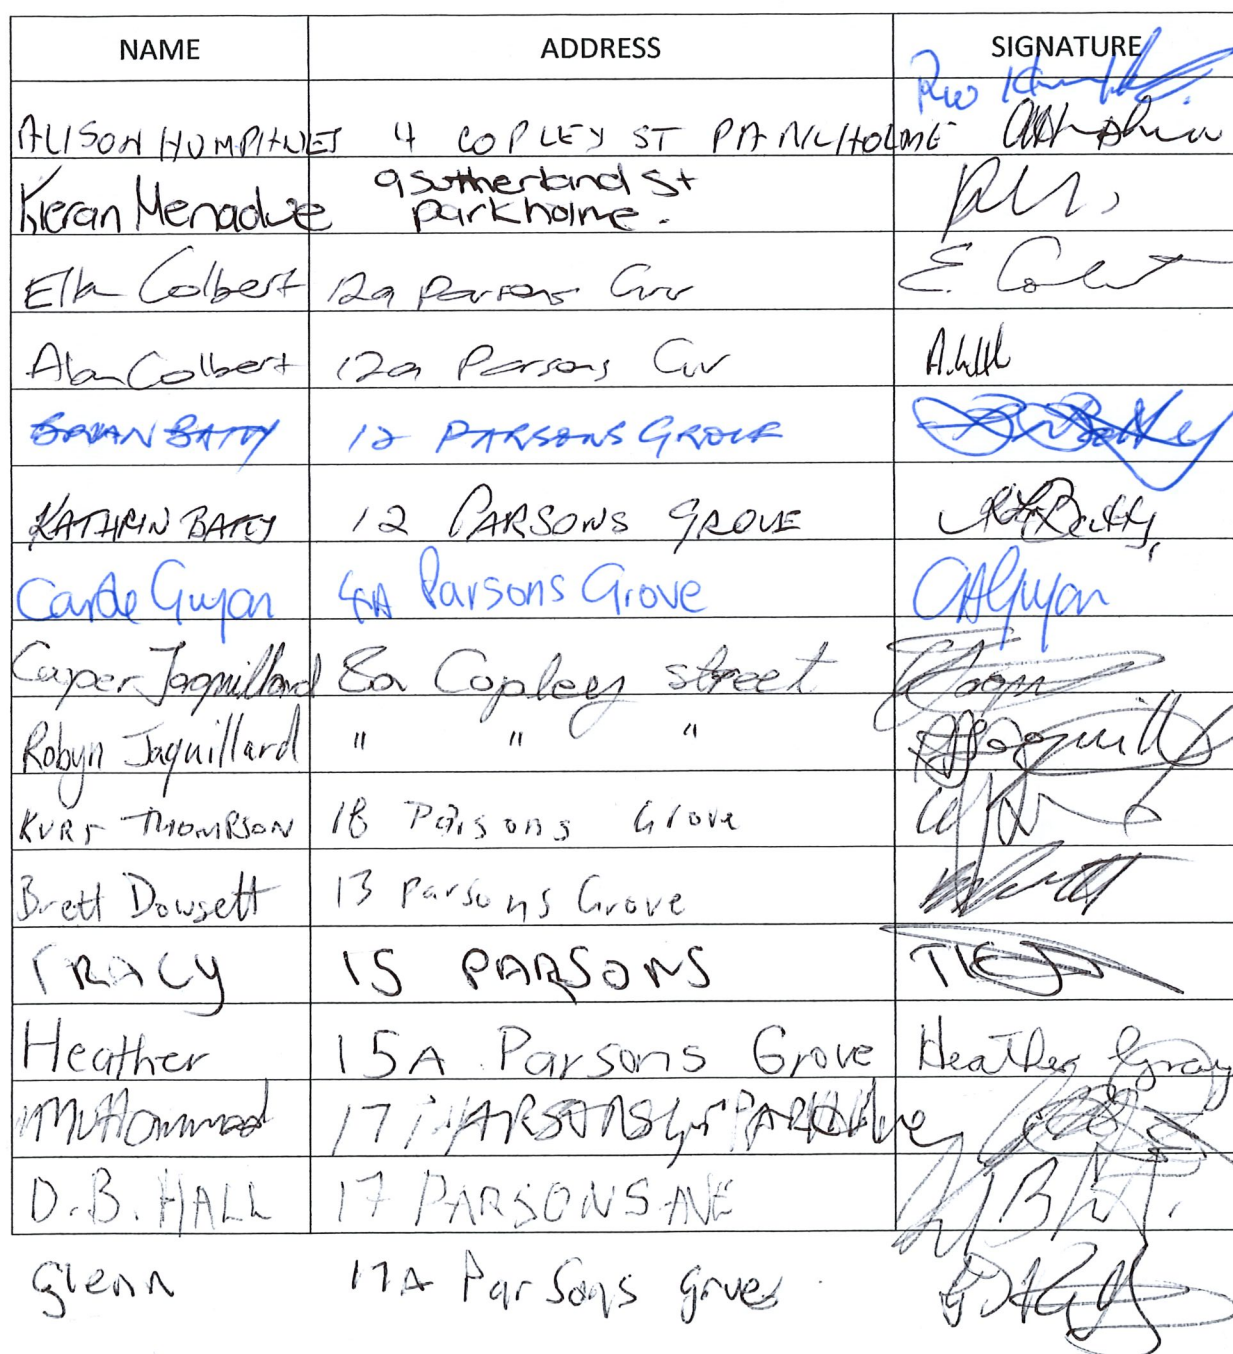 NAME ADDRESS SIGNATURE
ALISON HUMPHRIES 4 COPLEY ST PARKHOLME
Kieran Menadue 9 Sutherland St
parkholme.
Ella Colbert 12a Parsons Grv E. Colbert
Alan Colbert 12a Parsons Grv
BRIAN BATTY 12 PARSONS GROVE B Batty
KATHRIN BATTY 12 PARSONS GROVE Batty
Carole Guyan Parsons Grove CAGuyan
Casper Jaquillard 8a Copley street
Robyn Jaquillard " " " Jaquillard
KURT THOMPSON 18 Parsons Grove
Brett Dowsett 13 Parsons Grove
TRACY 15 PARSONS
Heather 15A Parsons Grove Heather Gray
Muhammad 17 PARSONS Gr PARKHolme
D.B. HALL 17 PARSONS AVE
Glenn 17A Parsons grove